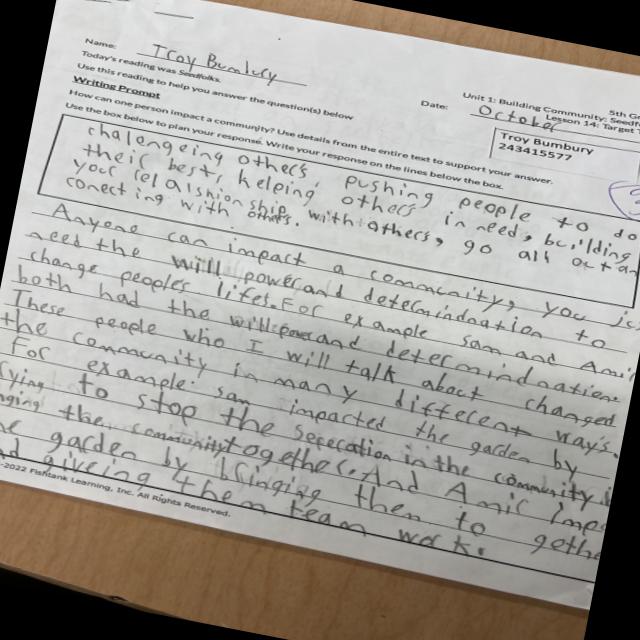 Name: Troy Bumbury
Today's reading was Seedfolks.
Use this reading to help you answer the question(s) below
Unit 1: Building Community: See
5th Gr
Date: October
Lesson 14: Target T
Troy Bumbury
243415577
Writing Prompt
How can one person impact a community? Use details from the entire text to support your answer.
Use the box below to plan your response. Write your response on the lines below the box.
challengeing others, pushing people to do
their best, helping others in need, building
your relaishionships with others, go all out on
conecting with others.
Anyone can impact a community, you js
need the will power and determindation to
change peoples life! For example sam and Ami
both had the willpower and determindation
These people who I will talk about changed
the community in many different ways.
For example: sam impacted the garden by
to stop the in the community
the community together. And Amic
garden by bringing them to gethe
giveing them team work.
-2022 Fishtank Learning, Inc. All Rights Reserved.